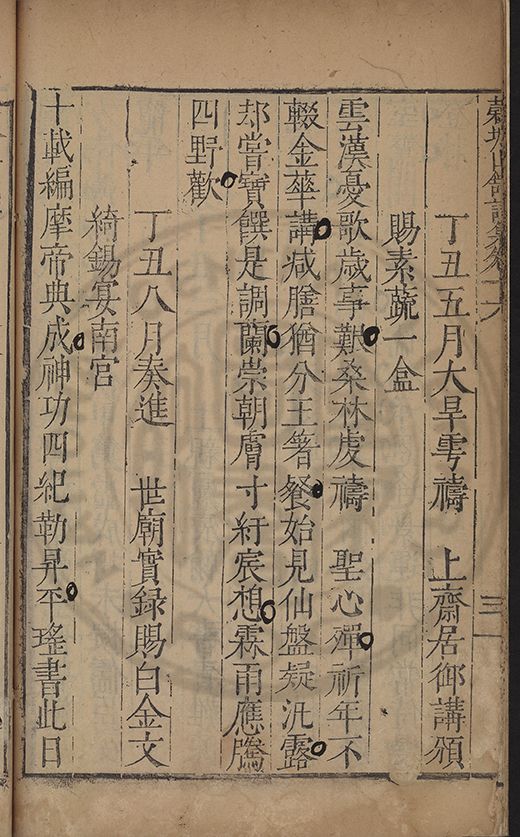 榖城山館詩集卷十八
三
丁丑五月大旱雩禱　上齋居御講頒
賜素蔬一盒
雲漢憂歌歲事艱桑林虔禱　聖心殫祈年不
輟金華講減膳猶分玉箸餐始見仙盤疑沆露
却嘗寶饌是調蘭崇朝膚寸紆宸想霖雨應騰
四野歡
丁丑八月奏進　世廟實録賜白金文
綺錫宴南宮
十載編摩帝典成神功四紀勒昇平瑤書此日